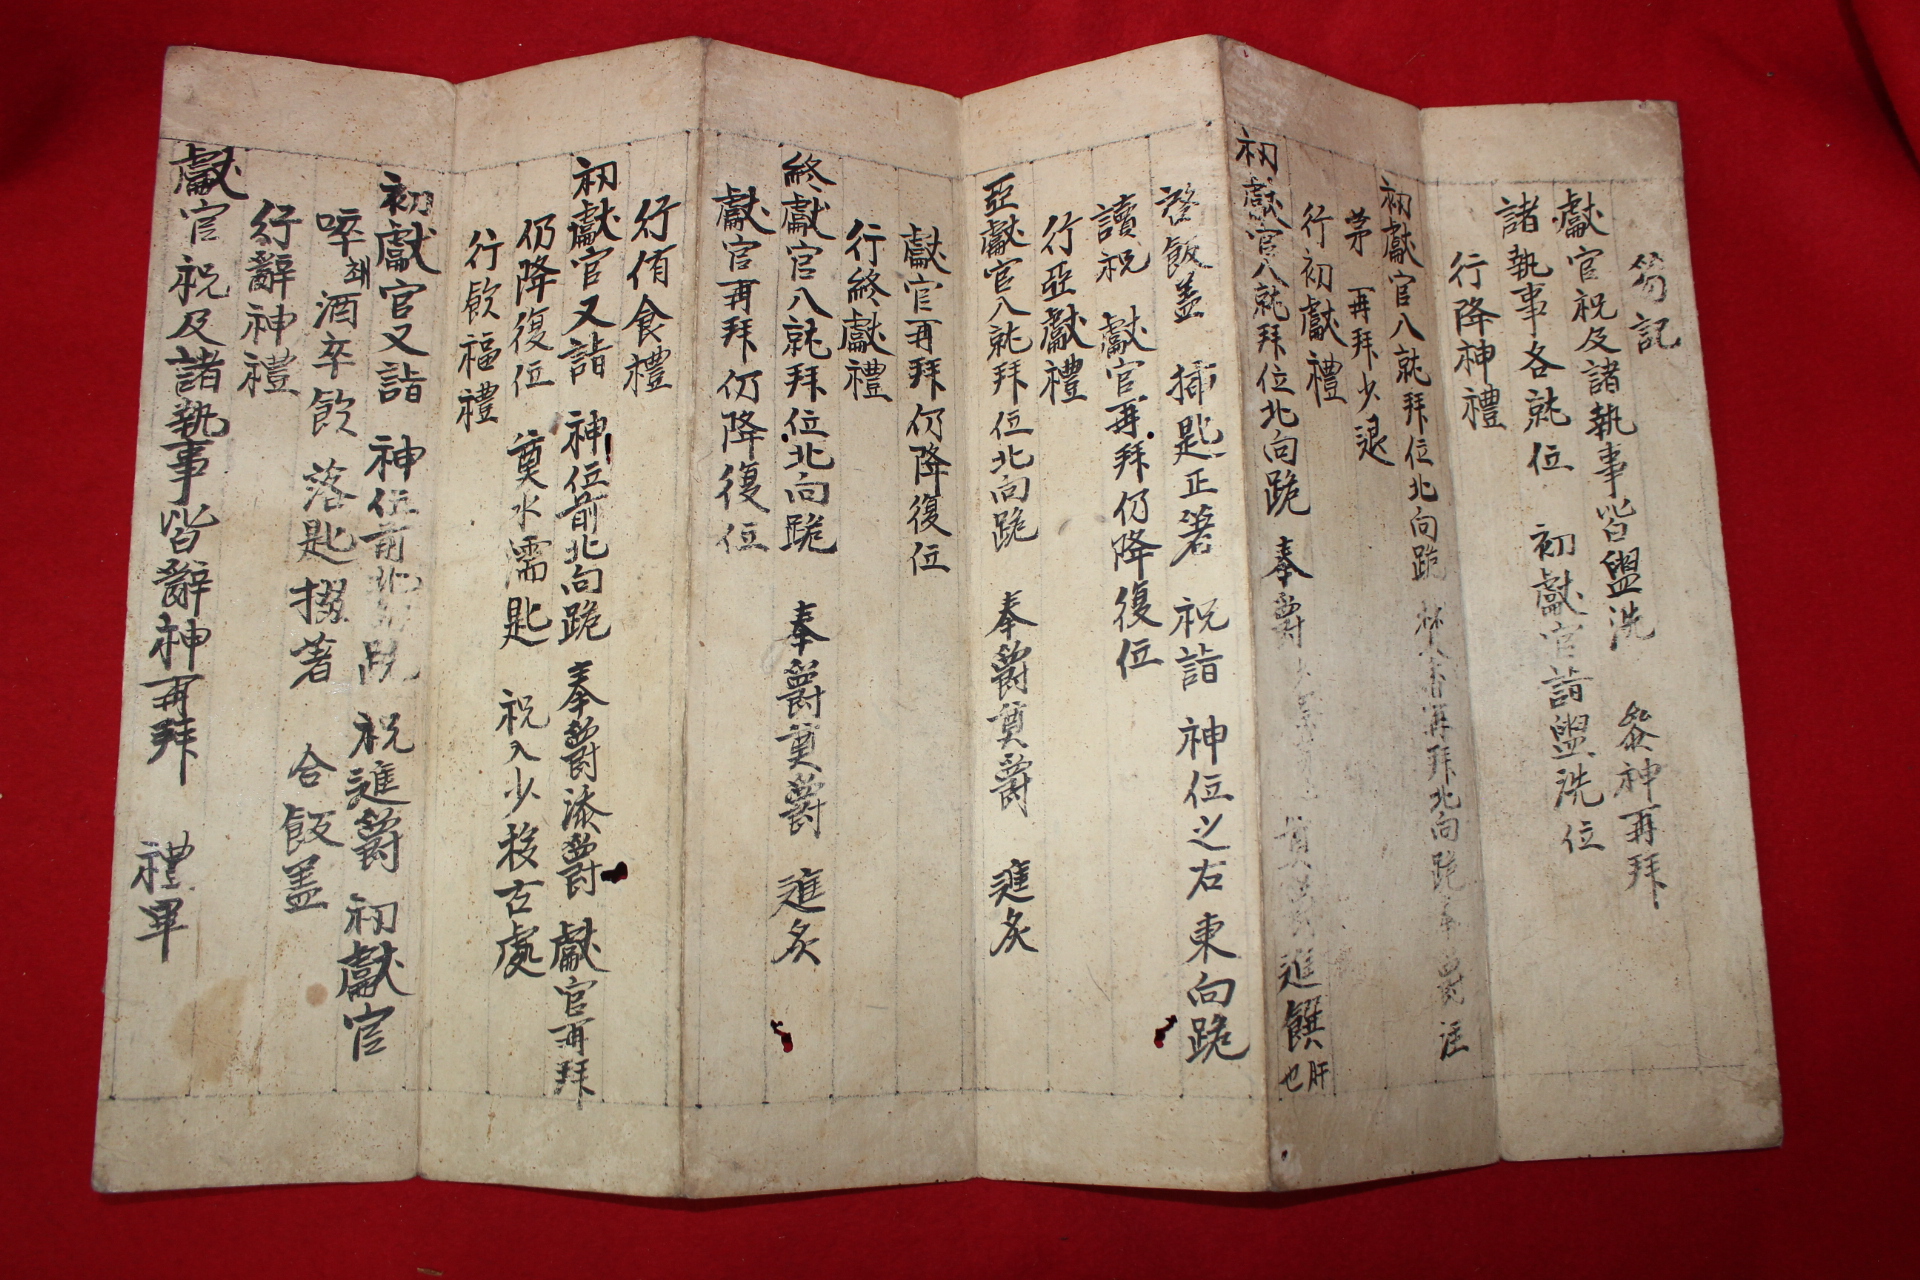 笏記
獻官祝及諸執事皆盥洗 叅神再拜
諸執事各就位 初獻官詣盥洗位
行降神禮
初獻官入就拜位北向跪 焚香再拜北向跪奉爵 注
茅 再拜少退
行初獻禮
初獻官入就拜位北向跪 奉爵 奠爵 進饌肝也
啓飯盖 揷匙正箸 祝詣 神位之右東向跪
讀祝 獻官再拜仍降復位
行亞獻禮
亞獻官入就拜位北向跪 奉爵奠爵 進炙
獻官再拜仍降復位
行終獻禮
終獻官入就拜位北向跪 奉爵奠爵 進炙
獻官再拜仍降復位
行侑食禮
初獻官又詣 神位前北向跪 奉爵添爵 獻官再拜
仍降復位 奠水濡匙 祝入少移古處
行飮福禮
初獻官又詣 神位前北向跪 祝進爵 初獻官
啐쵀酒卒飮 落匙掇著 合飯盖
行辭神禮
獻官祝及諸執事皆辭神再拜 禮畢